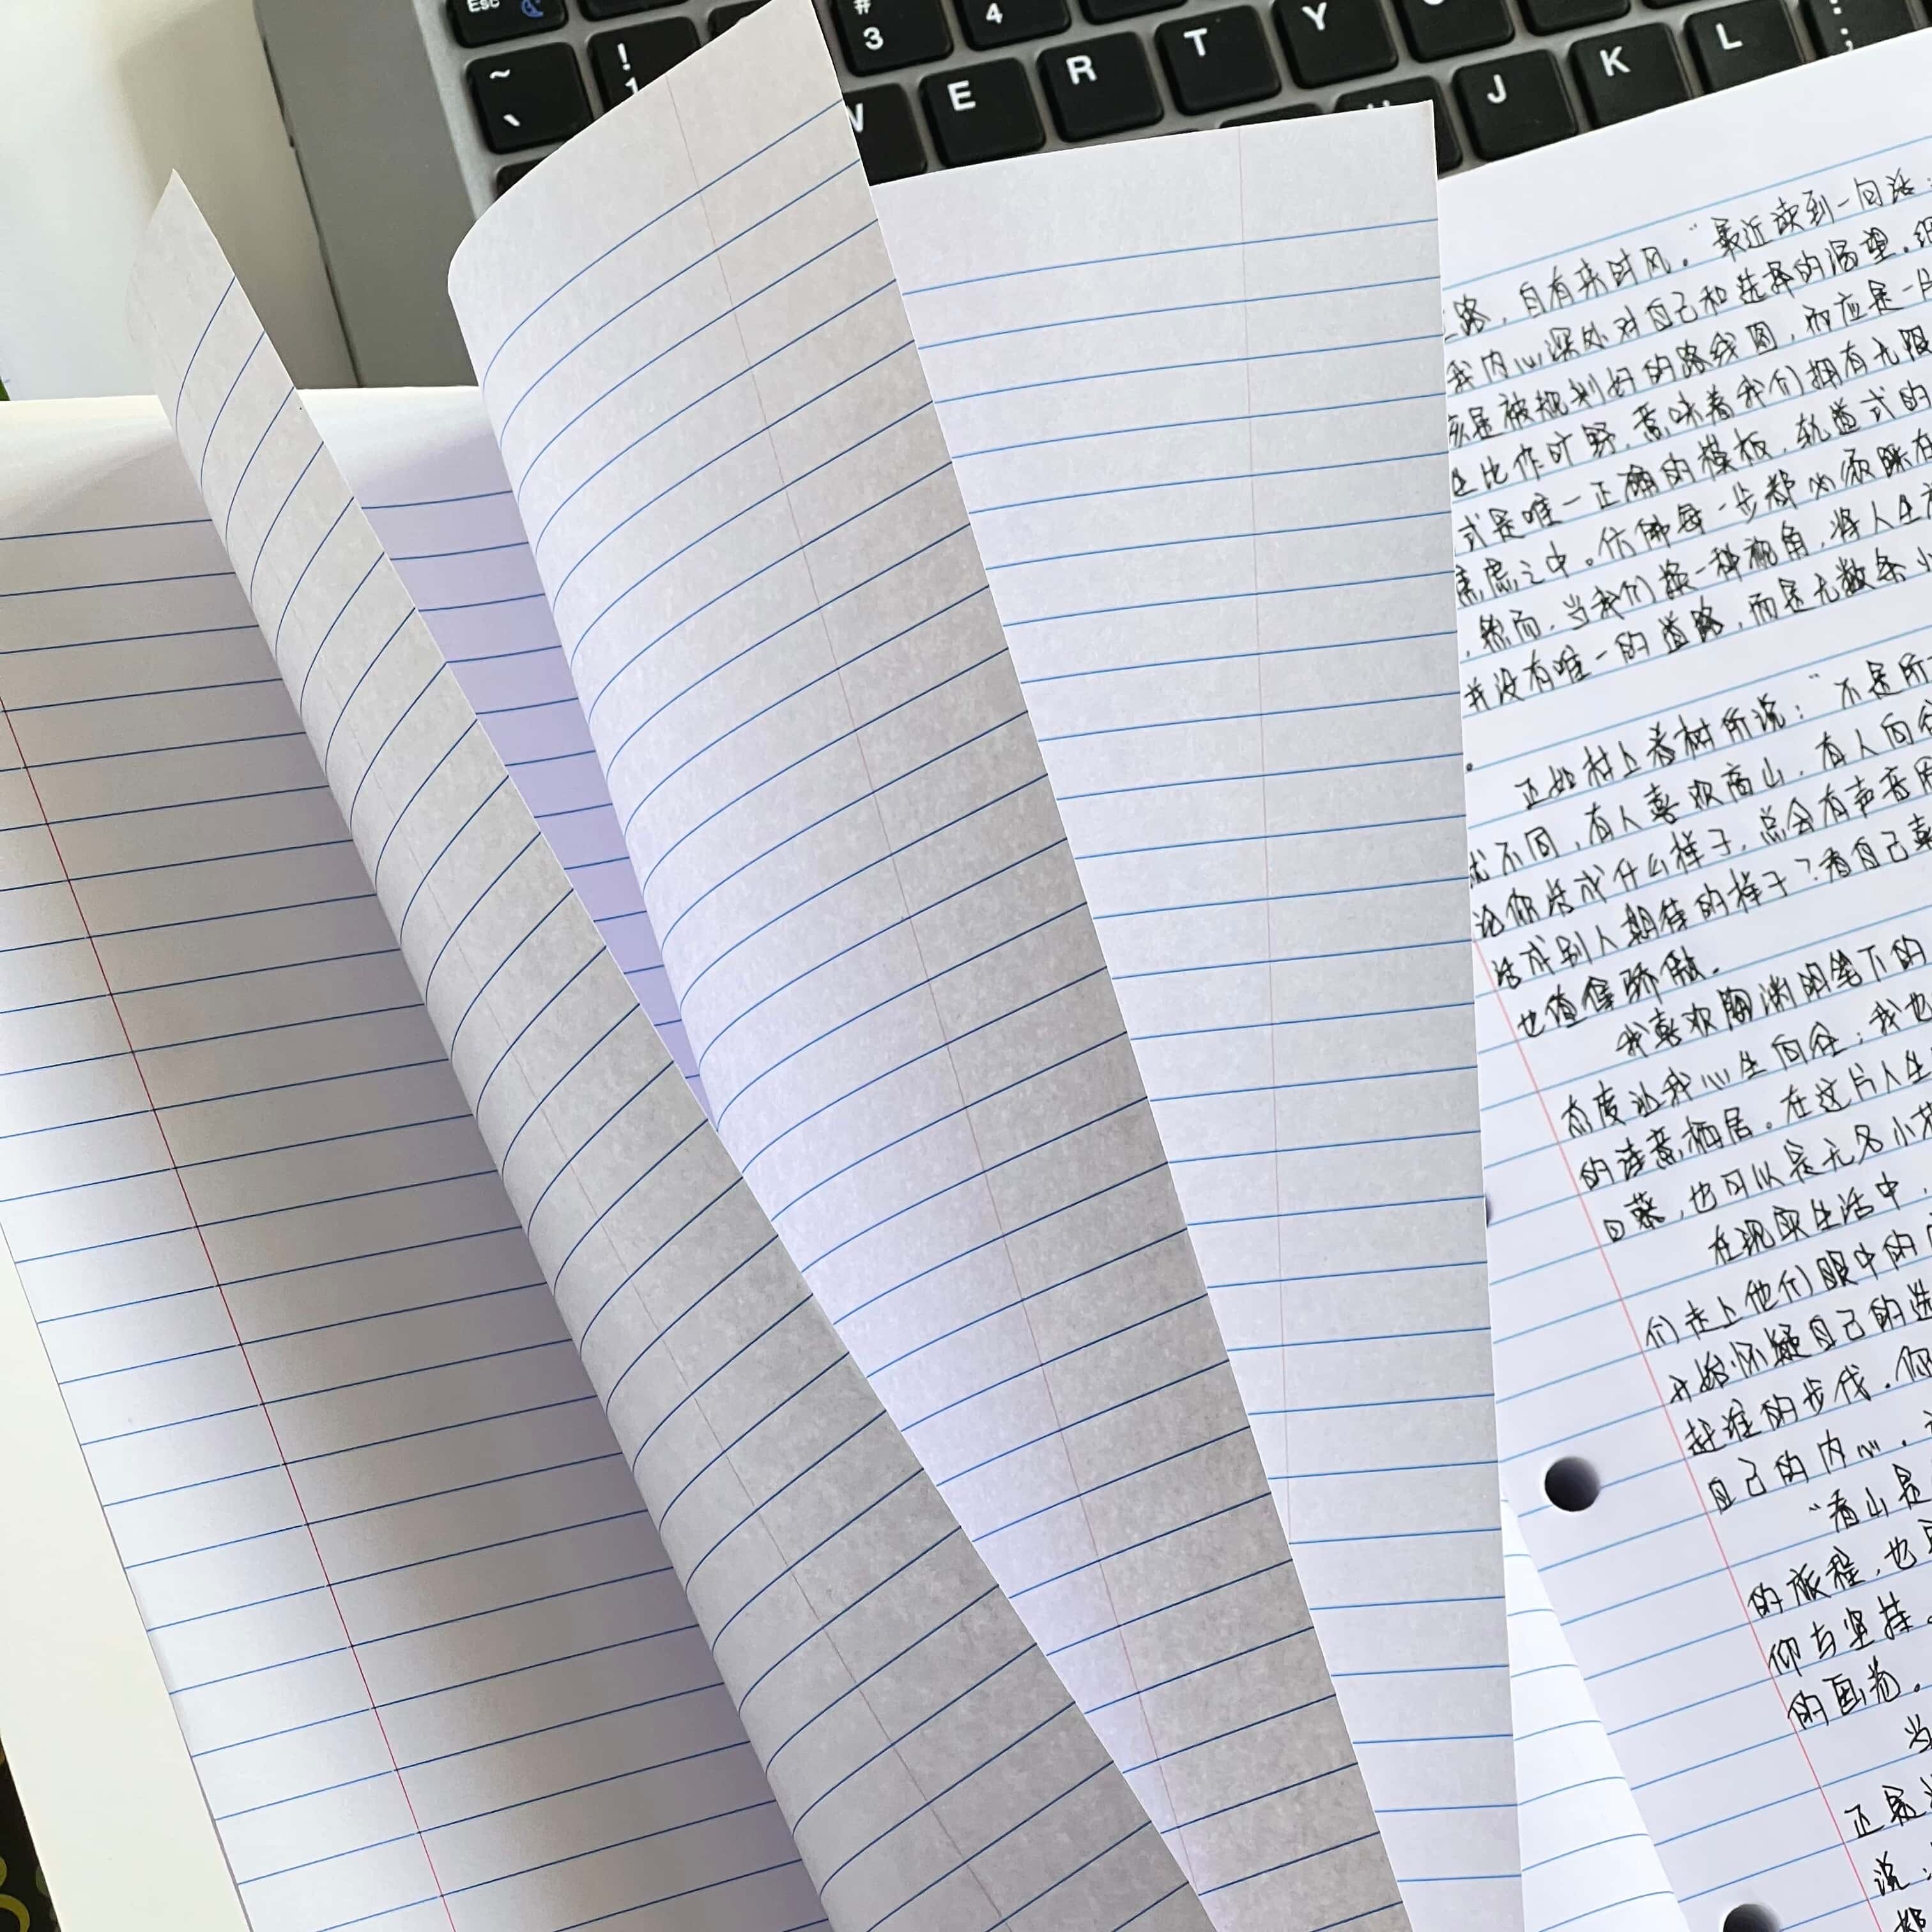 Esc
~ `
! 1
# 3
4
E R T Y
J K L : ;
路，自有来时风。”最近读到一句话：
我内心深处对自己和选择的渴望。
该是被规划好的路线图，而应是一片
比作旷野，意味着我们拥有无限
式是唯一正确的模板，轨道式的
焦虑之中。仿佛每一步都必须踩在
，然而，当我们换一种视角，将人生
并没有唯一的道路，而是无数条小
。
正如村上春树所说：“不是所
就不同，有人喜欢高山，有人向往
论你活成什么样子，总会有声音
活成别人期待的样子？看自己喜
也值得骄傲。
我喜欢陶渊明笔下的
态度让我心生向往；我也
的诗意栖居。在这片人生
，也可以是无名小花
在现实生活中，
们走上他们眼中的
开始怀疑自己的选
赶谁的步伐。你
自己的内心。
“看山是
的旅程，也是
仰与坚持。
的画卷。
当
正是
说：